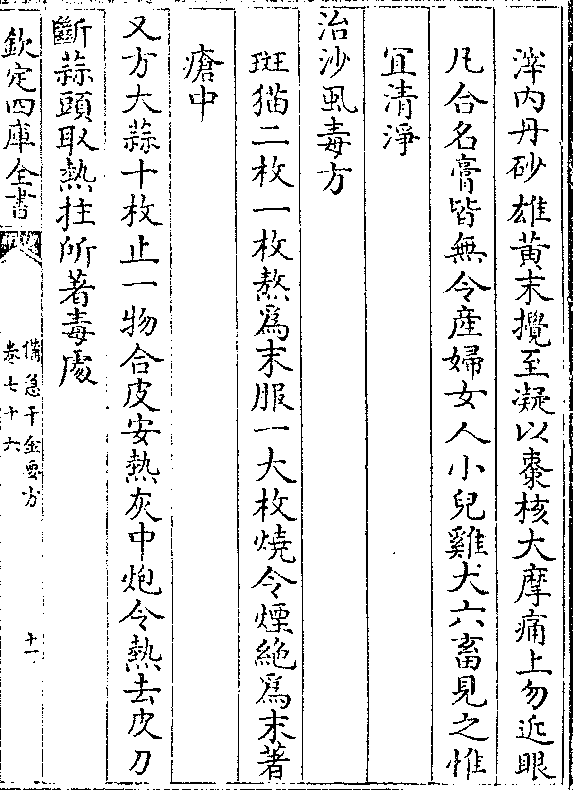 滓内丹砂雄黄末攪至凝以棗核大摩痛上勿近眼
凡合名膏皆無令産婦女人小兒雞犬六畜見之惟
宜清淨
治沙虱毒方
斑猫二枚一枚熬爲末服一大枚燒令煙絶爲末著
瘡中
又方大蒜十枚止一物合皮安熱灰中炮令熱去皮刀
斷蒜頭取熱拄所著毒處
欽定四庫全書
備急千金要方
卷七十六
十一